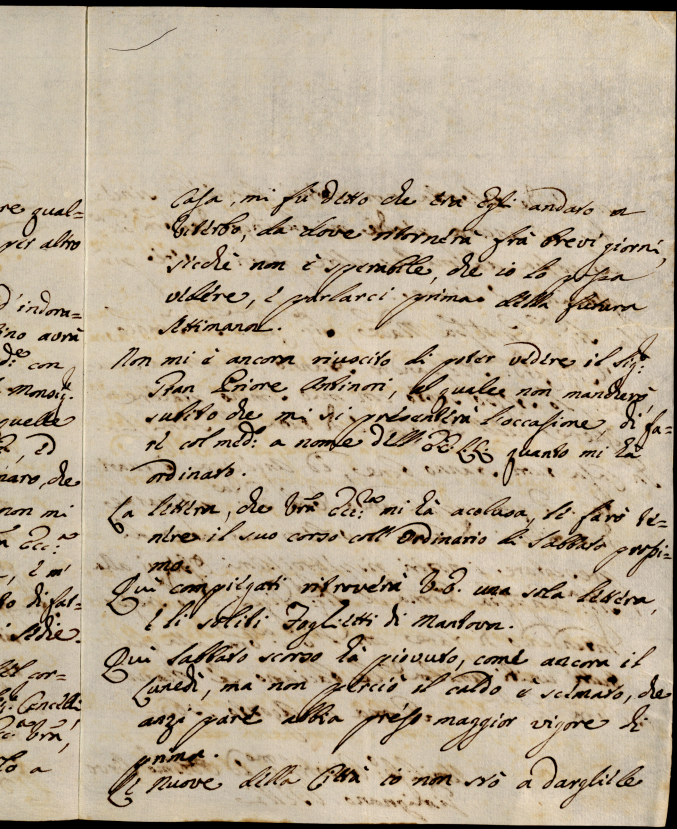 re qual=
per altro
d'indora=
ino avrà
con
Monsig.
quella
ed
naro, che
non mi
Ecc.
è m'
to di fat=
Sedie.
cor=
Vrã,
lo a
Casa, mi fù detto che era Egli andato a
Viterbo, da dove ritornerà frà brevi giorni,
sicchè non è sperabile, che io lo possa
vedere, è parlarci prima della futura
settimana.
Non mi è ancora riuscito di poter vedere il Sig.
Gran Priore Antinori, al quale non mancherò,
subito che mi si presenterà l'occasione di fa=
re col med. a nome dell' quanto mi hà
ordinato.
La lettera, che Vrã Ecc. mi hà acclusa, li farò te=
nere il suo corso coll' Ordinario di Sabbato prossi=
mo.
Quì compiegati ritroverà V. E. una sola lettera,
è li soliti Foglietti di Mantova.
Quì Sabbato scorso hà piovuto, come ancora il
Lunedì, ma non perciò il caldo è scemato, che
anzi pare abbia preso maggior vigore di
prima.
Le nuove della Città io non stò a dargliele